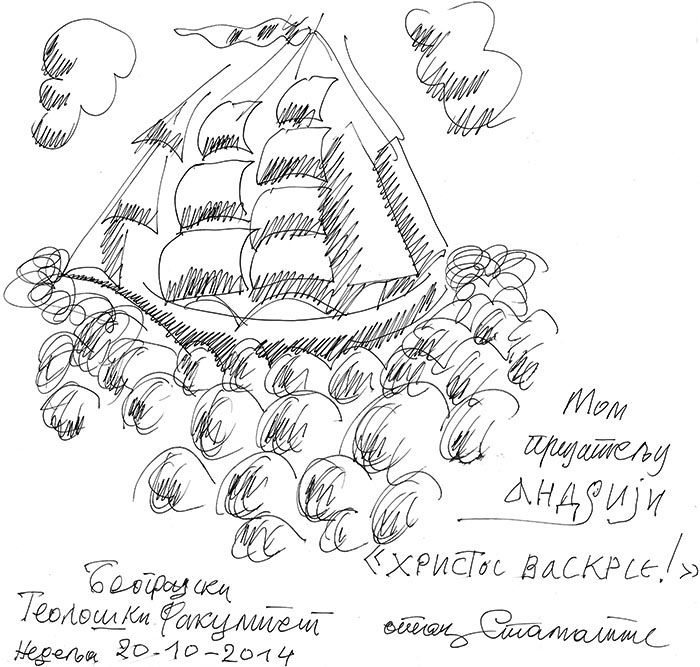 Мом
пријатељу
АНДРИЈИ
«ХРИСТОС ВАСКРСЕ!»
отац Стаматис
Београдски
Теолошки Факултет
Недеља 20-10-2014